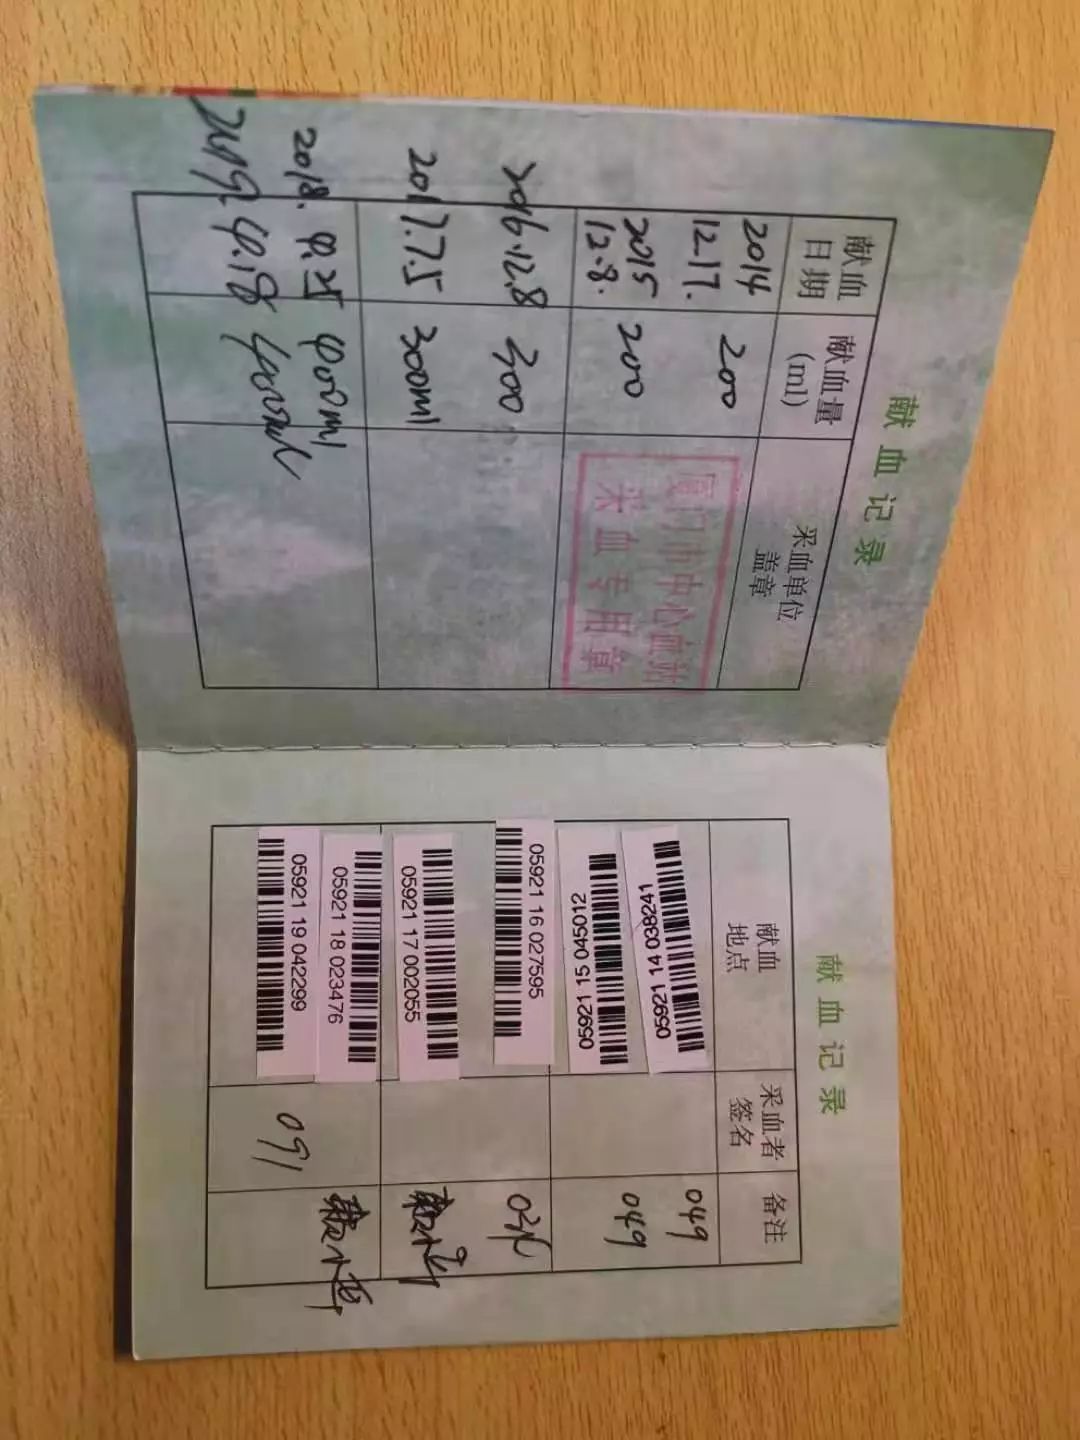 献血记录
献血日期
献血量(ml)
采血单位盖章
2014 12.17.
200
2015 12.8.
200
厦门市中心血站
采血专用章
2016.12.8
300
2017.7.5
300ml
2018. 4.25
400ml
2019. 4.18
400ml
献血记录
献血地点
采血者签名
备注
05921 14 038241
049
05921 15 045012
049
05921 16 027595
05921 17 002055
05921 18 023476
05921 19 042299
091